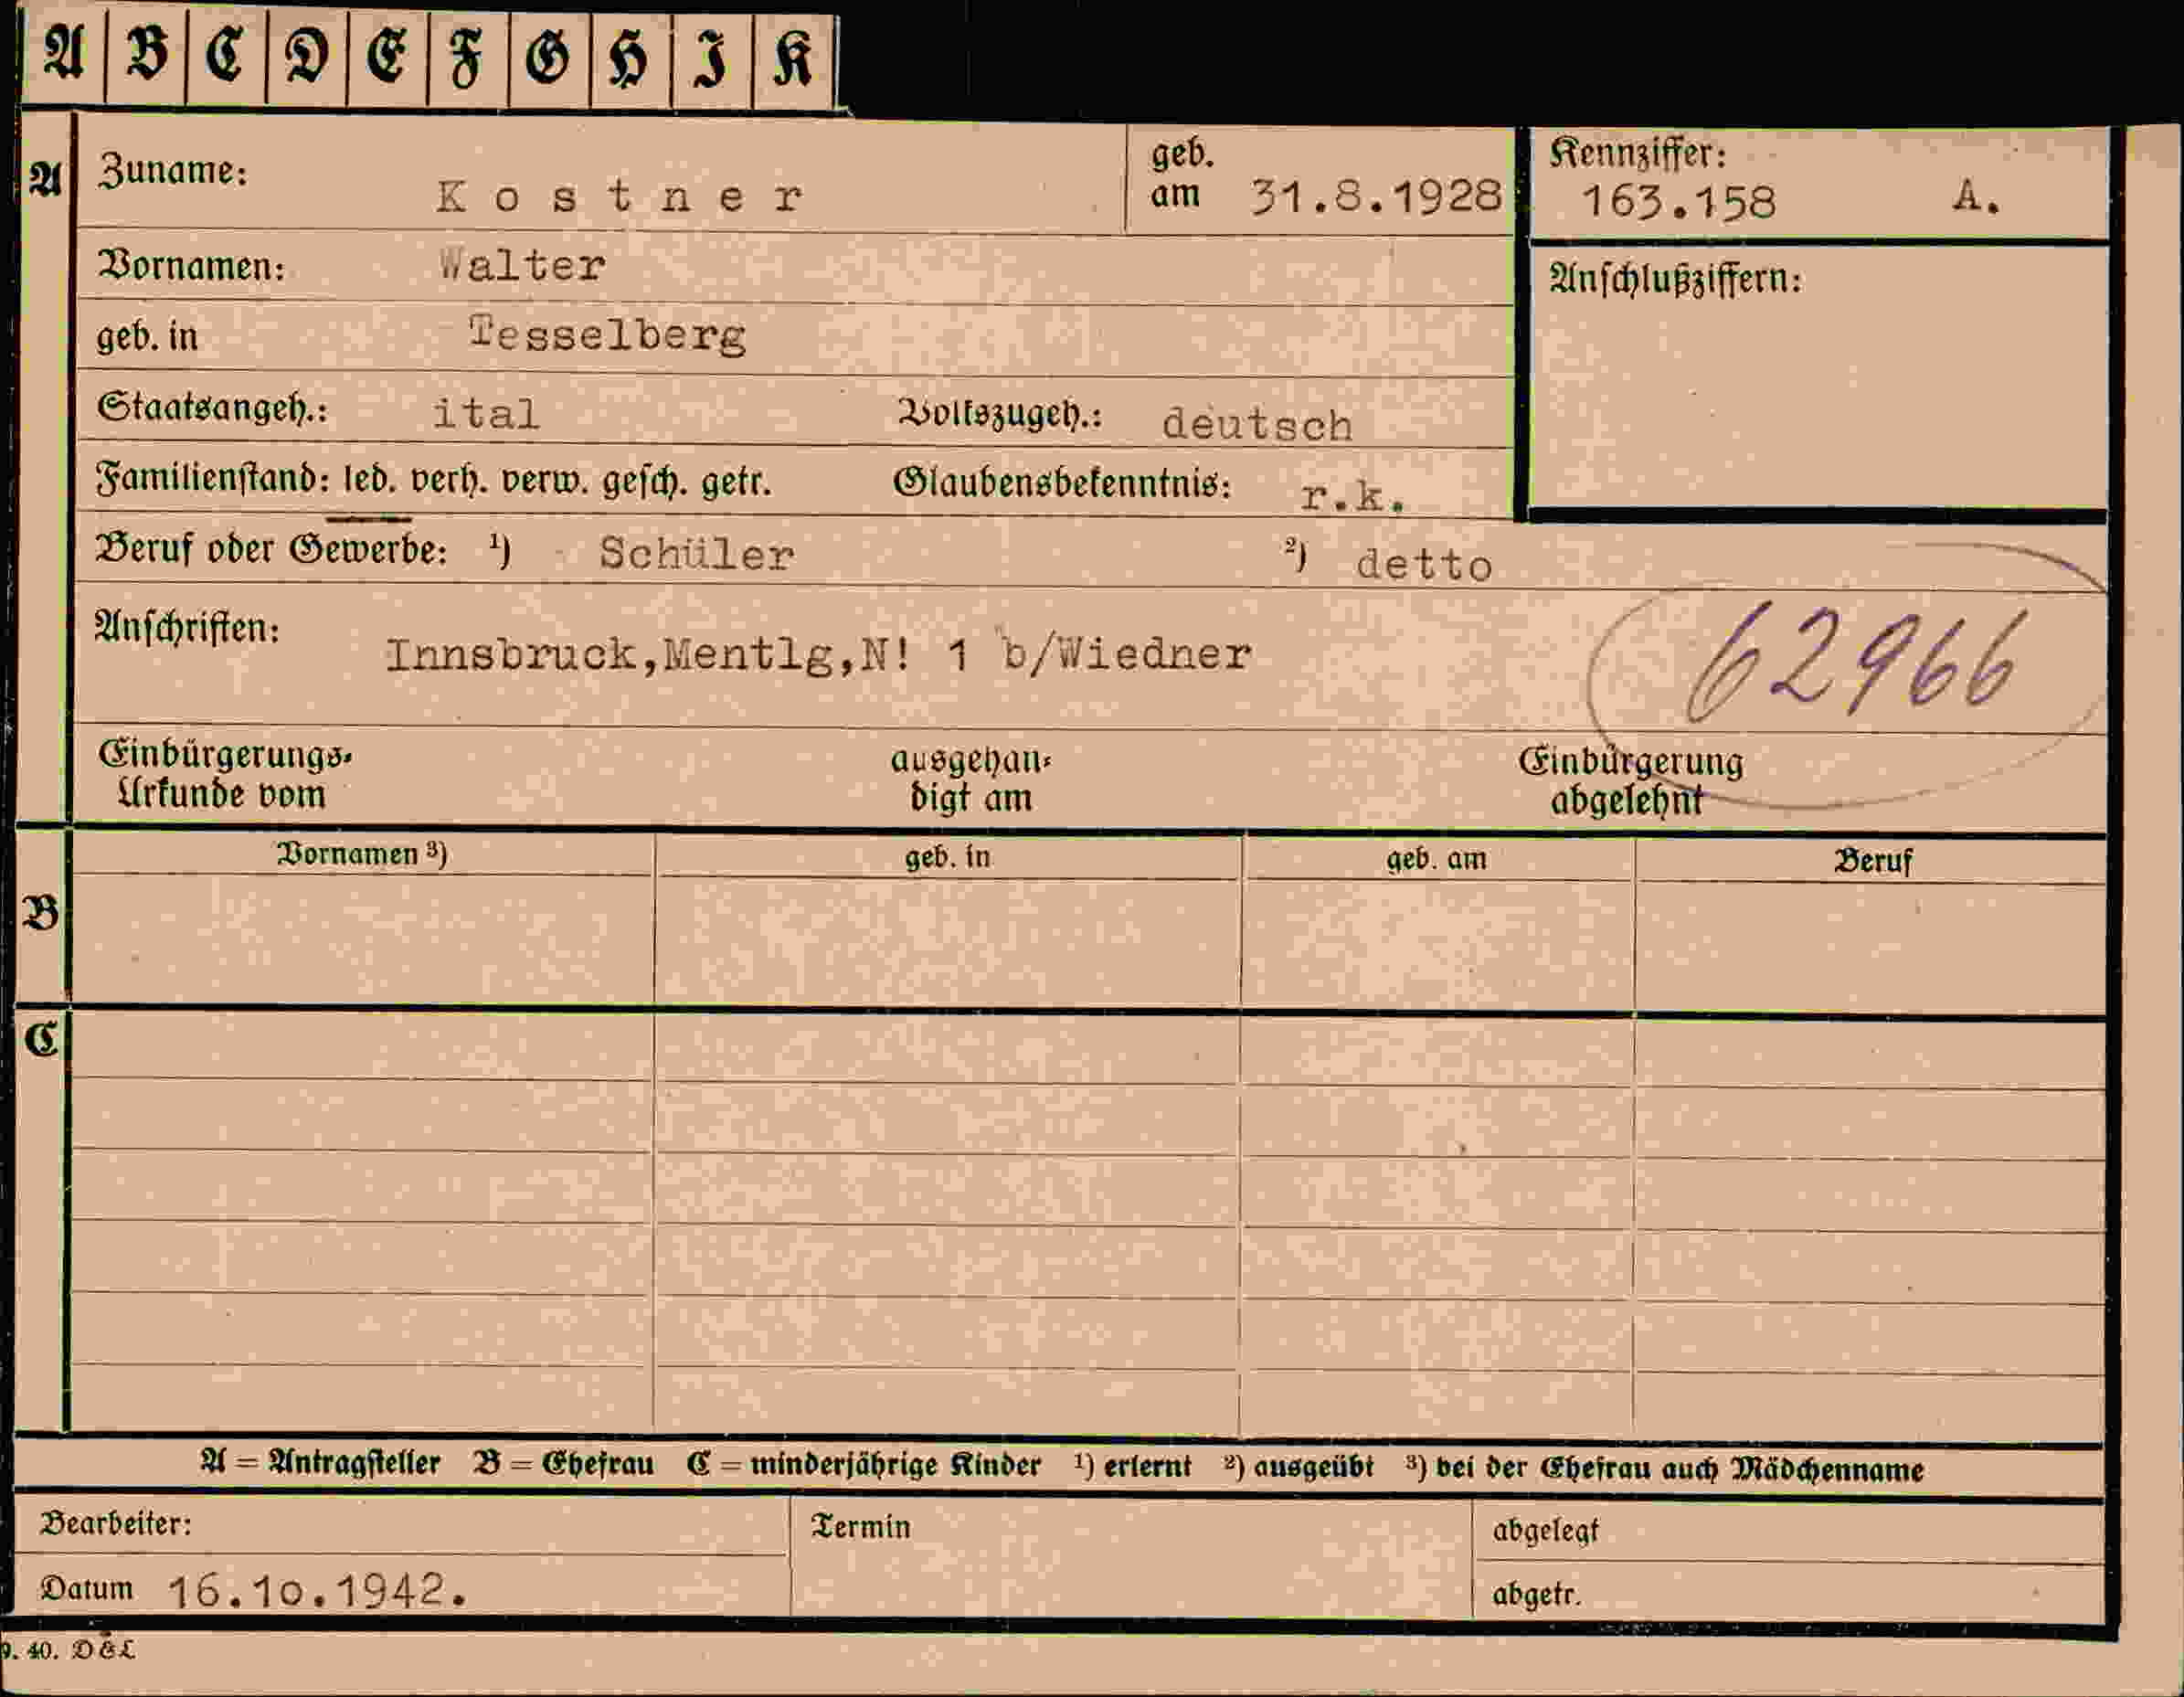 A B C D E F G H I K
A Zuname: Kostner geb. am 31.8.1928 Kennziffer: 163.158 A.
Vornamen: Walter Anschlußziffern:
geb. in Tesselberg
Staatsangeh.: ital Volkszugeh.: deutsch
Familienstand: led. verh. verw. gesch. getr. Glaubensbekenntnis: r.k.
Beruf oder Gewerbe: ¹) Schüler ²) detto
Anschriften: Innsbruck,Mentlg,N! 1 b/Wiedner 62966
Einbürgerungs- ausgehän- Einbürgerung
Urkunde vom digt am abgelehnt
Vornamen ³) geb. in geb. am Beruf
B
C
A = Antragsteller B = Ehefrau C = minderjährige Kinder ¹) erlernt ²) ausgeübt ³) bei der Ehefrau auch Mädchenname
Bearbeiter: Termin abgelegt
Datum 16.10.1942. abgetr.
9. 40. DEL